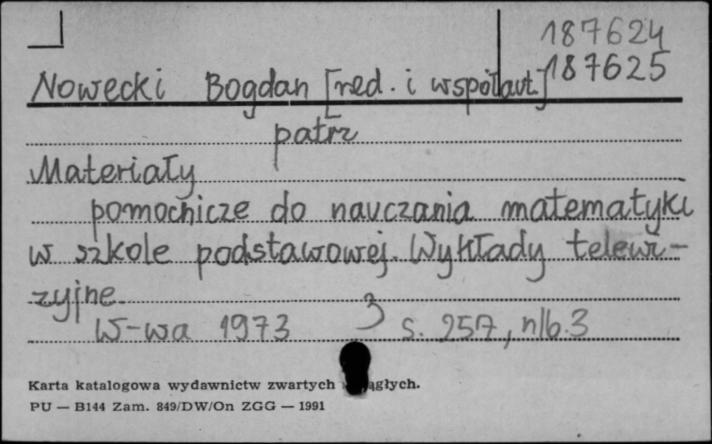 187624
187625
Nowecki Bogdan [red. i współaut.]
patrz
Materiały
pomocnicze do nauczania matematyki
w szkole podstawowej. Wykłady telewi-
zyjne.
W-wa 1973 3 s. 257, nlb. 3
Karta katalogowa wydawnictw zwartych
PU — B144 Zam. 849/DW/On ZGG — 1991